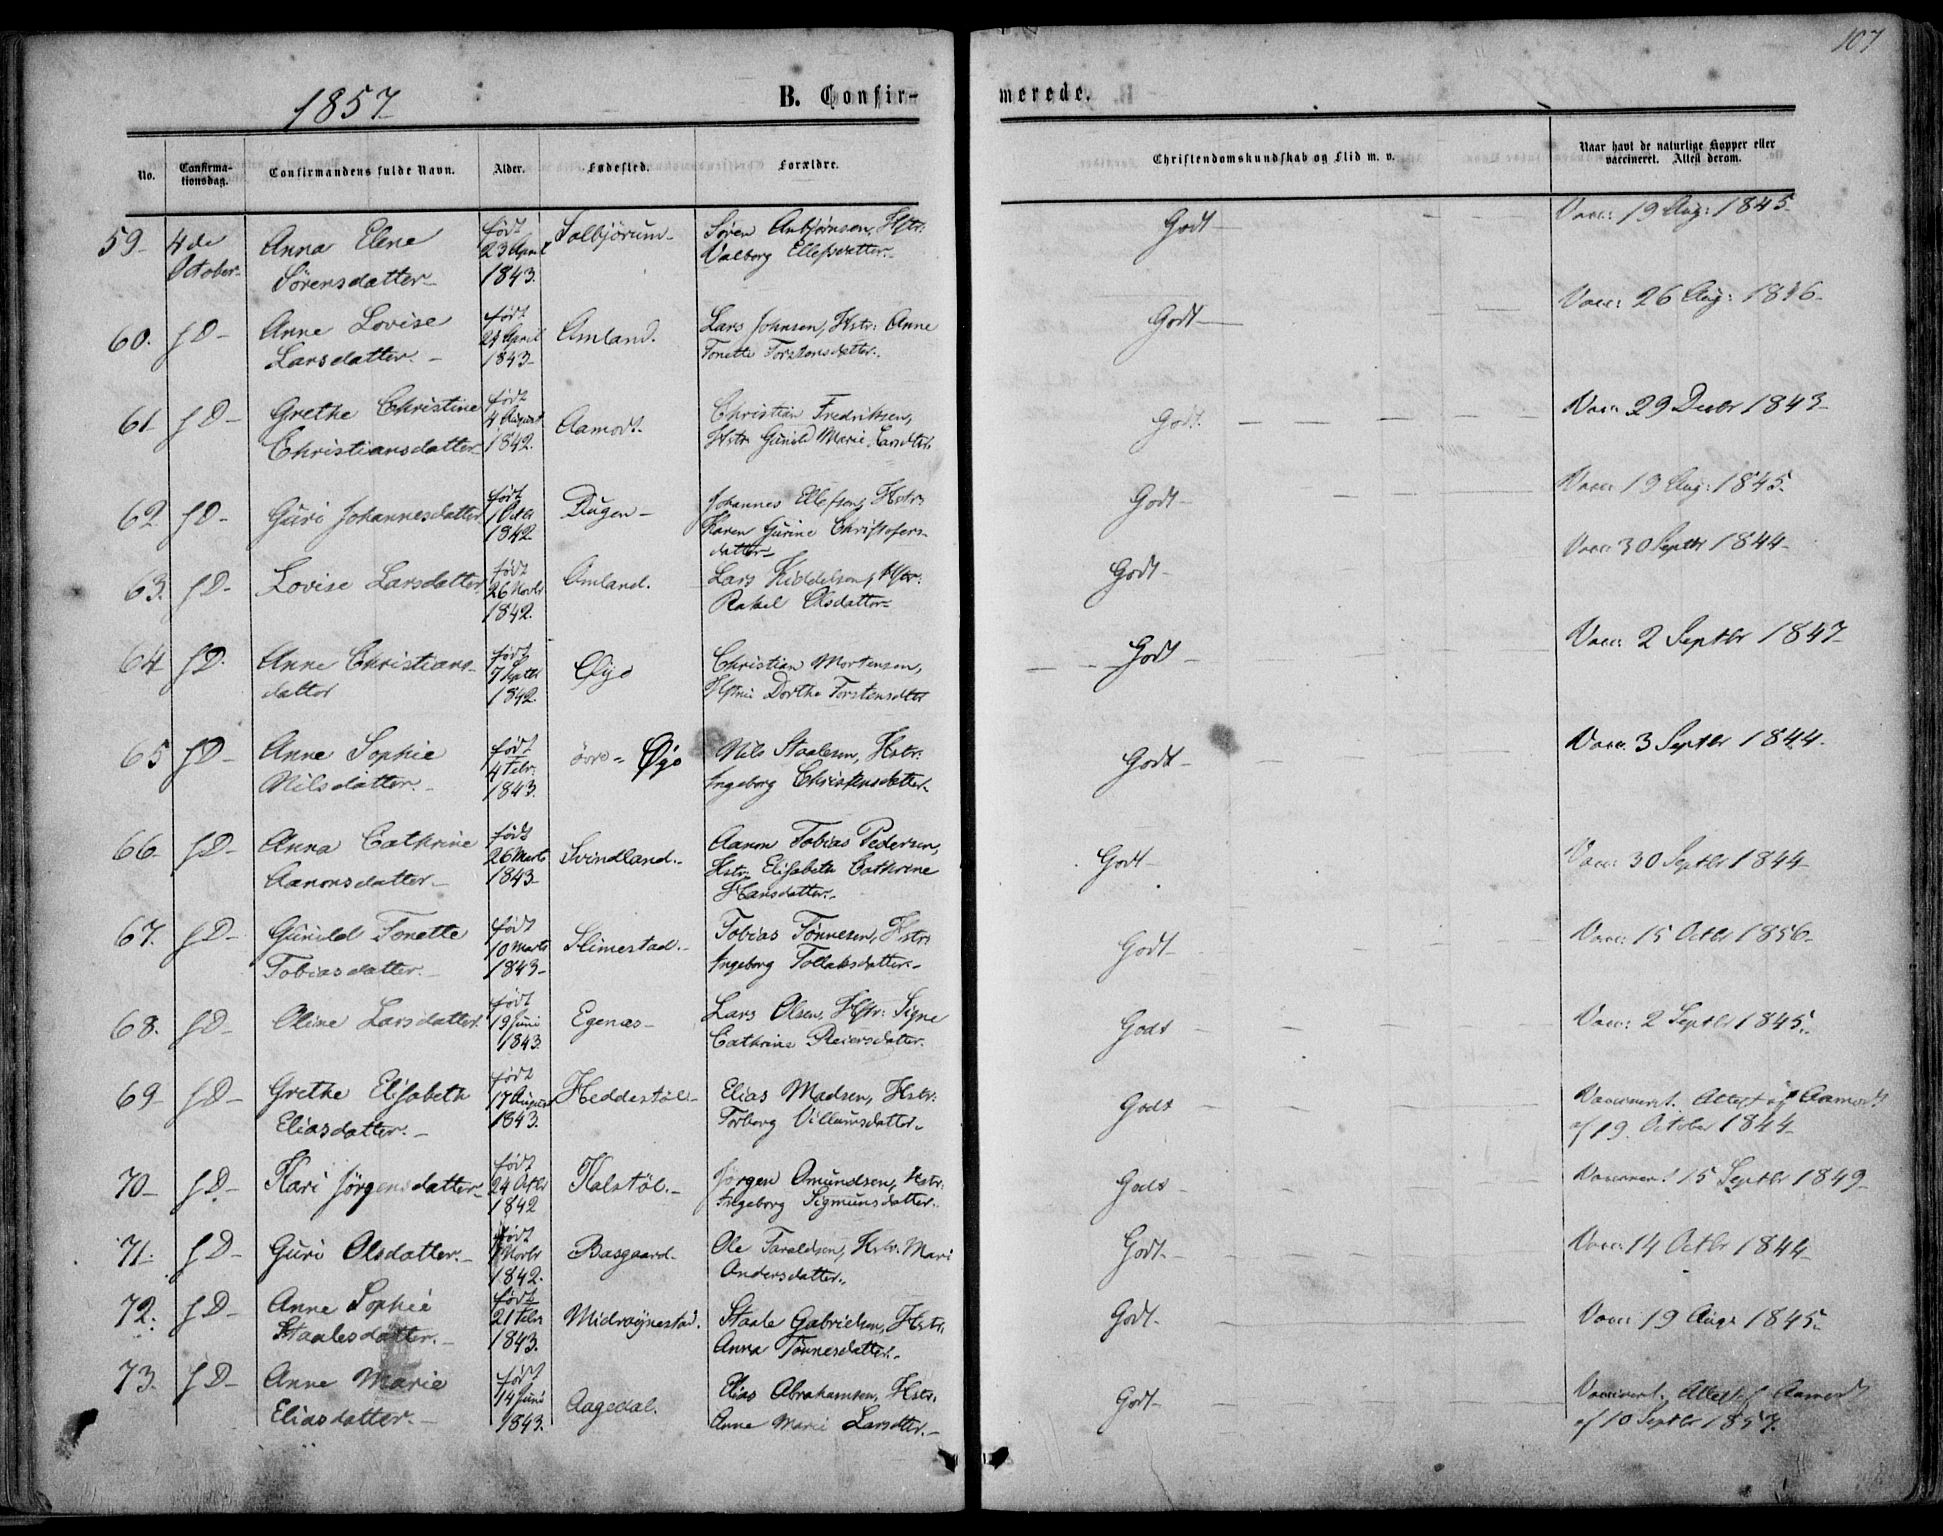 107
1857
B. Confir-
merede.
No.
Confirma-
tionsdag.
Confirmandens fulde Navn.
Alder.
Fødested.
Forældre.
Christendomskundskab og Flid m. v.
Naar havt de naturlige Kopper eller
vaccineret. Attest derom.
59- 4de Anna Elene født Søren Anbjørnsen, Hstr: Godt - Vacc: 19 Aug: 1845-
October- Sørensdatter- 23 April 1843. Valborg Ellefsdatter-
60. f D- Anne Lovise født Amland. Lars Johnsen, Hstr: Anne Godt - Vacc: 26 Aug:
Larsdatter. - April 1843- Tonette Torstensdatter.
61 f D- Grethe Christine født Aamodt. Christian Fredriksen, Godt. Vacc: 29 Decbr 1843-
Christiansdatter- 4 August 1842. Hstr: Gunild Marie Larsdtr.
62 f D- Guri Johannesdatter født Johannes Ellefsen, Hstr: Godt - Vacc: 19 Aug: 1845-
1842 Karen Gurine Christofers-
datter-
63. f D- Lovise Larsdatter født Amland. Lars Hstr: Godt - Vacc: 30 Septbr 1844-
26 Novbr 1842. Rakel Olsdatter-
64 f D. Anne Christians- født Øye Christian Mortensen, Godt - Vacc: 2 Septbr 1847
datter 7 Septbr 1842. Hstru Dorthe Torstensdtr
65 f D- Anne Sophie født øvre- Øye Nils Staalesen, Hstr: Godt - Vacc. 3 Septbr 1844.
Nilsdatter. - 4 Febr: 1843. Ingeborg Christensdatter-
66- f D- Anna Cathrine født Svindland.- Aanon Tobias Pedersen, Godt - Vacc: 30 Septbr 1844-
Aanonsdatter- 26 Marts 1843- Hstr: Elisabeth Cathrine
Hansdatter.-
67. f D- Gunild Tonette født Slimestad.- Tobias Tønnesen, Hstr: Godt - Vacc: 15 Octbr 1856-
Tobiasdatter. - 10 Marts 1843- Ingeborg Tollaksdatter-
68. f D- Oline Larsdatter født Egenæs- Lars Olsen, Hstr: Signe Godt Vacc: 2 Septbr 1845.
19 Juni 1843. Cathrine Reiersdatter.
69 f D- Grethe Elisabeth født Heddestøl- Elias Madsen, Hstr: Godt - Vaccineret. Attest af Aamodt
Eliasdatter. - 17 August 1843. Torborg Villumsdatter- af 19. October 1844-
70- f D- Kari Jørgensdatter- født Kalstøl.- Jørgen Omundsen, Hstr: Godt - 15 Septbr 1849-
24 Octbr 1842 Ingeborg Sigmunsdatter.
71. f D- Guri Olsdatter.- født Basgaard- Ole Taraldsen, Hstr: Mari Godt - Vacc: 14 Octbr 1844-
Novbr 1842. Andersdatter.
72. f D- Anne Sophie født Midrøynestad. Staale Gabrielsen, Hstr: Godt - Vacc: 19 Aug: 1845-
Staalesdatter.- 21 Febr 1843. Anna Tønnesdatter.-
73. f D- Anne Marie født Aagedal. Elias Abrahamsen, Hstr: Godt - Vaccineret. Attest af Aamodt
Eliasdatter.- 14 Juni 1843. Anne Marie Larsdtr.- af 10 Septbr 1857.